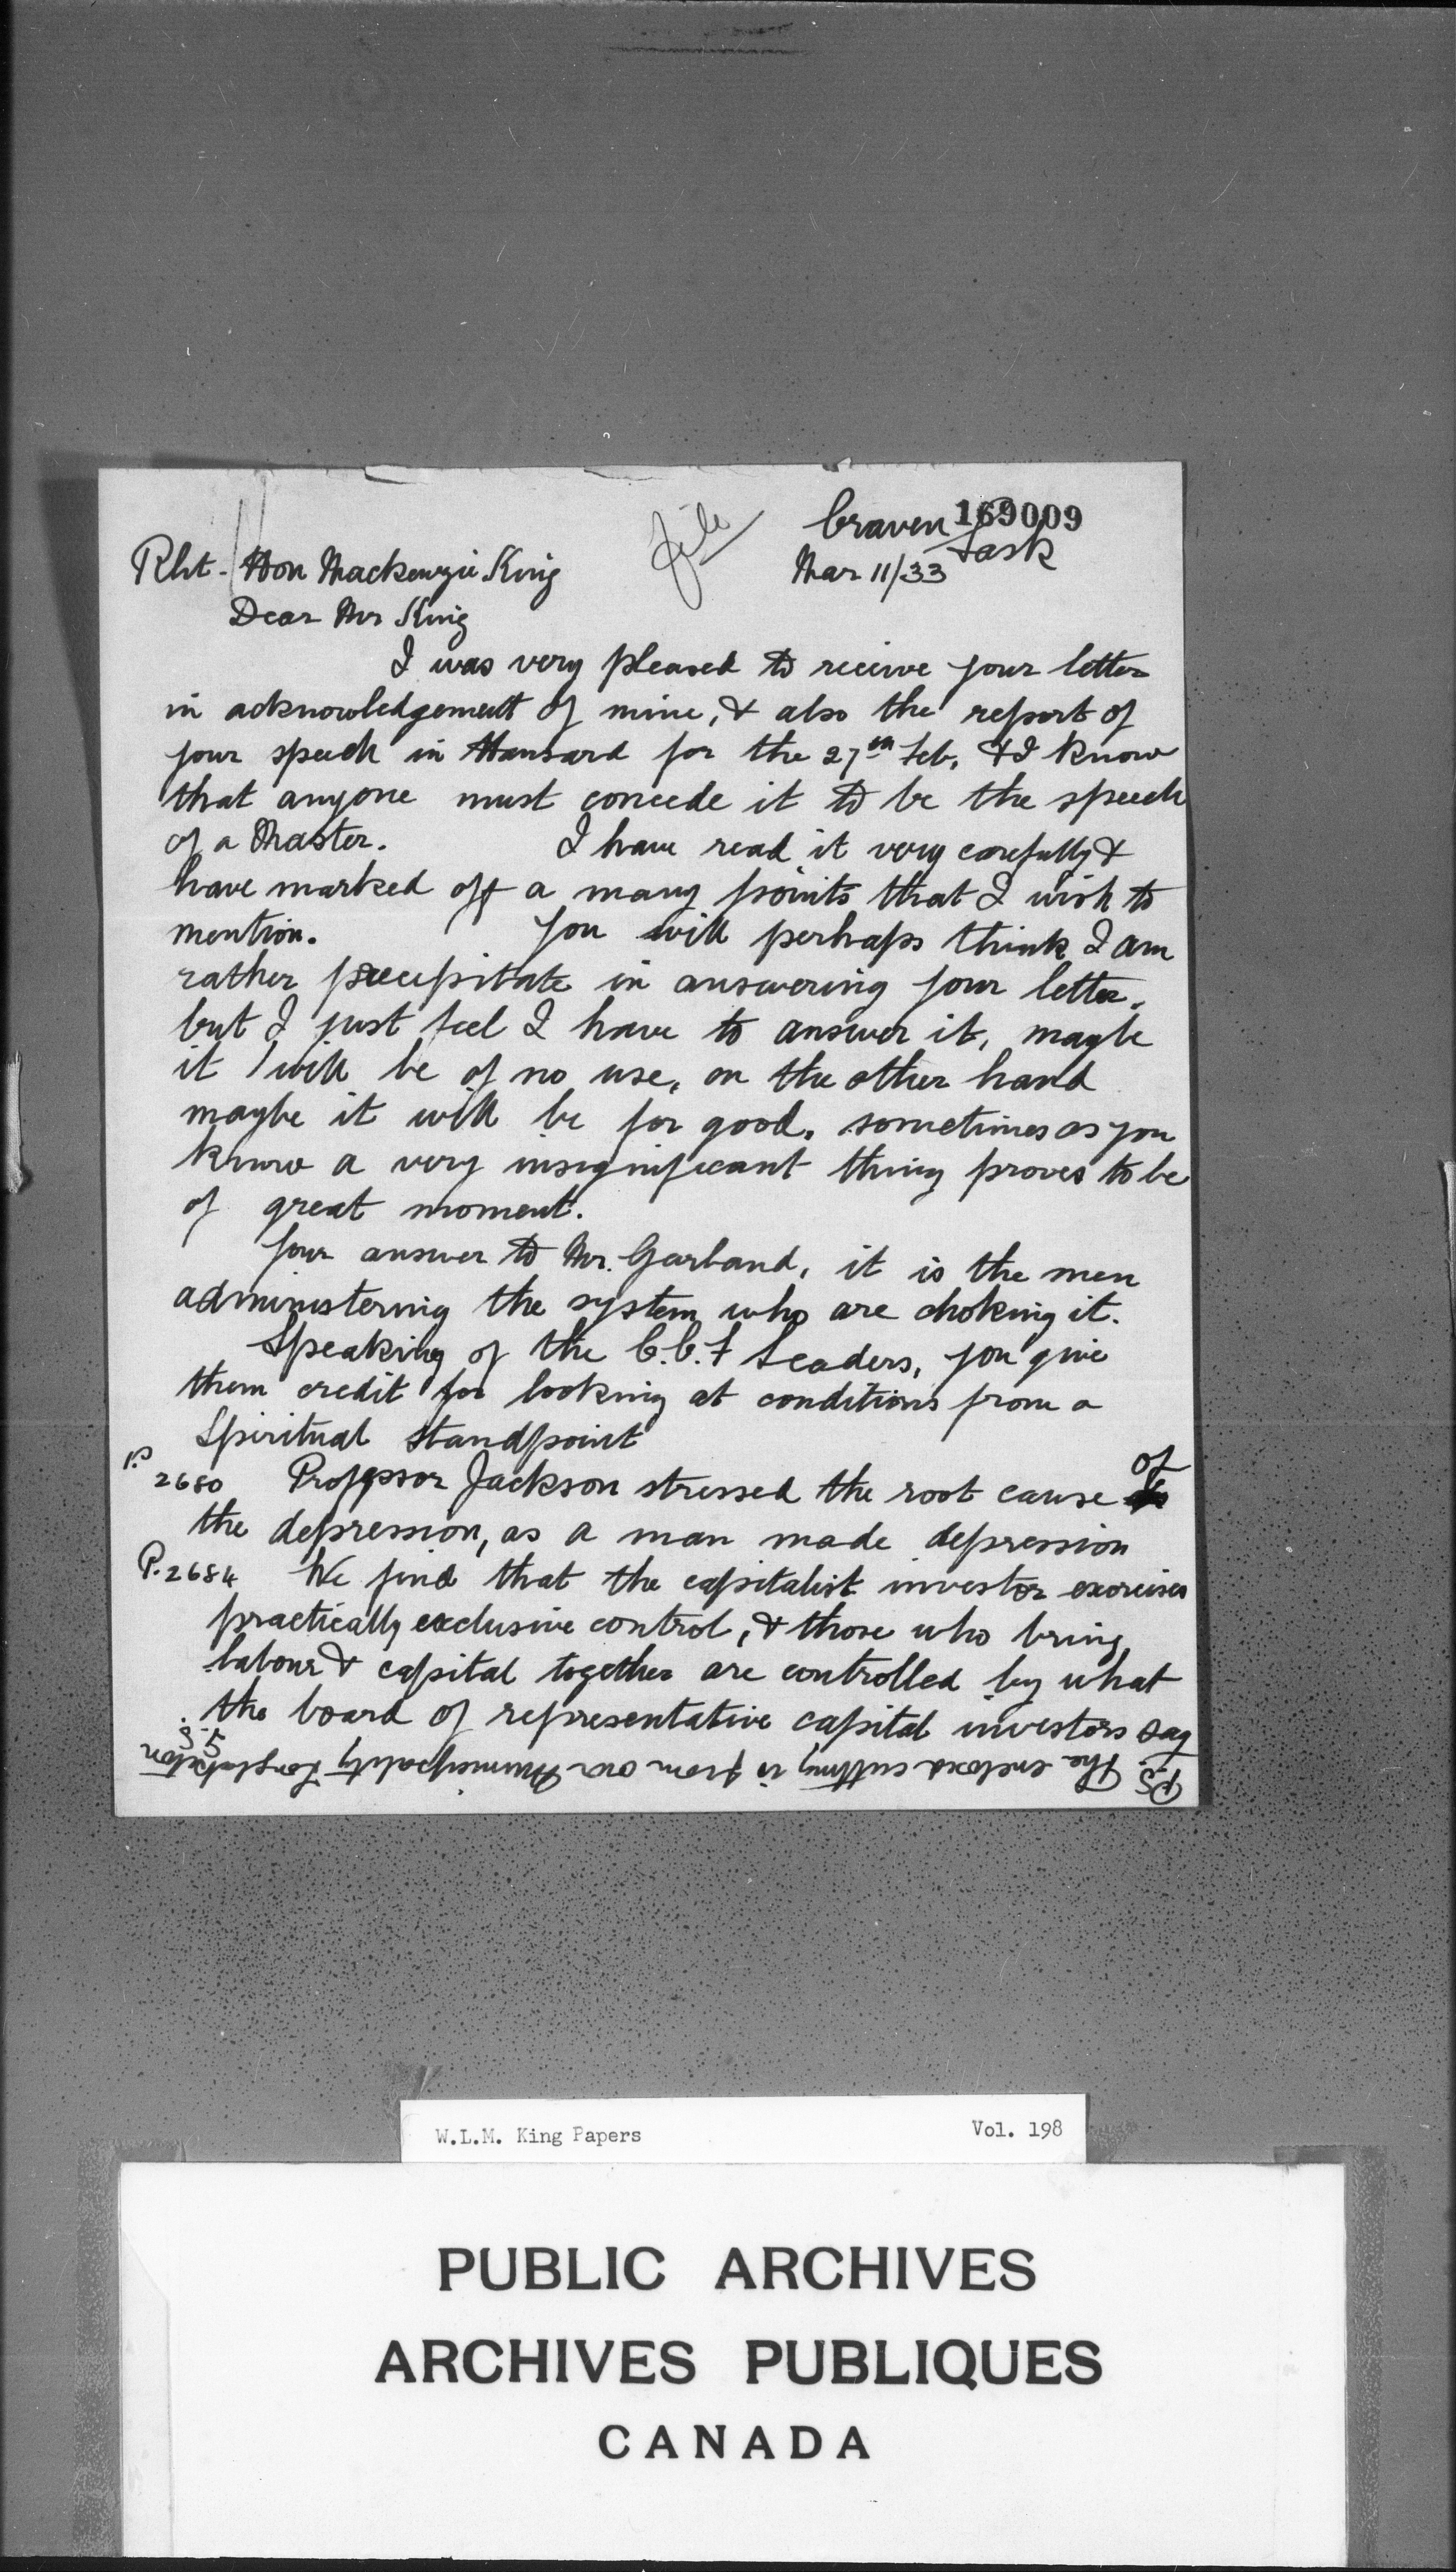 file
Craven 169009
Sask
Rht. Hon Mackenzie King
Mar 11/33
Dear Mr King
I was very pleased to receive your letter
in acknowledgement of mine, & also the report of
your speech in Hansard for the 27th Feb, & I know
that anyone must concede it to be the speech
of a Master. I have read it very carefully &
have marked off a many points that I wish to
mention. You will perhaps think I am
rather precipitate in answering your letter,
but I just feel I have to answer it, maybe
it will be of no use, on the other hand
maybe it will be for good, sometimes as you
know a very insignificant thing proves to be
of great moment.
Your answer to Mr. Garland, it is the men
administering the system who are choking it.
Speaking of the C.C.F Leaders, you give
them credit for looking at conditions from a
Spiritual standpoint
P
2680 Professor Jackson stressed the root cause of
the depression, as a man made depression
P.2684 We find that the capitalist investor exercises
practically exclusive control, & those who bring
labour & capital together are controlled by what
the board of representative capital investors say
P.S. The enclosed cutting is from our Municipality
W.L.M. King Papers Vol. 198
PUBLIC ARCHIVES
ARCHIVES PUBLIQUES
CANADA